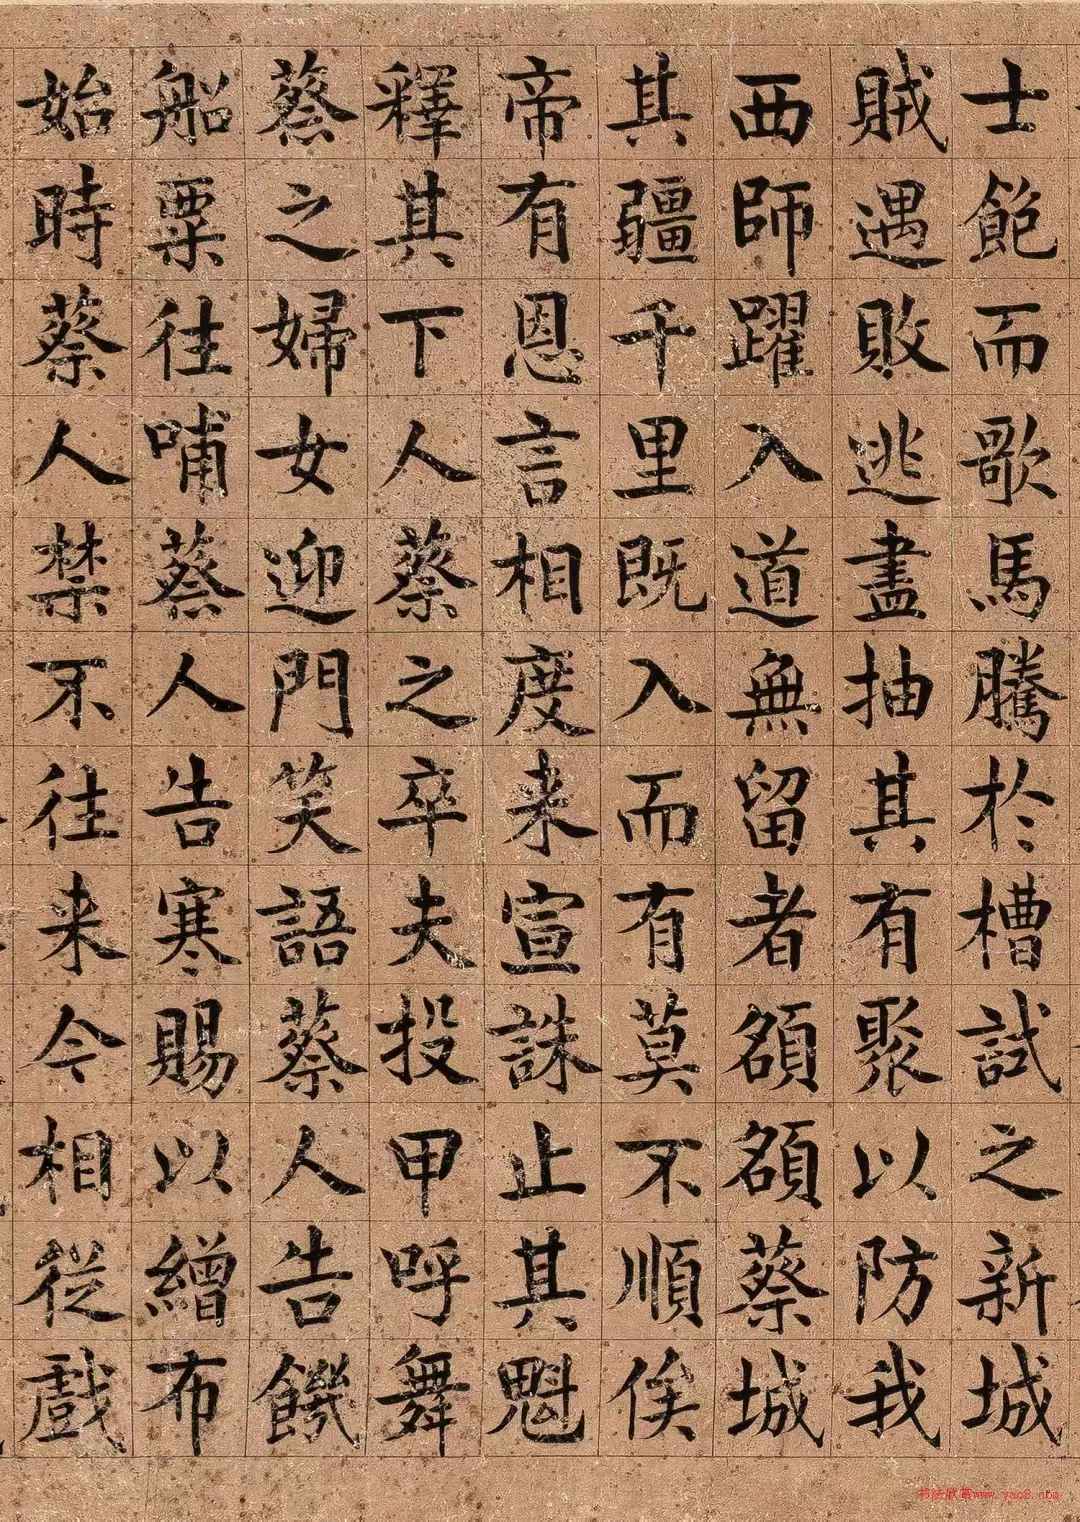 士飽而歌馬騰於槽試之新城
賊遇敗逃盡抽其有聚以防我
西師躍入道無留者頟頟蔡城
其疆千里既入而有莫不順俟
帝有恩言相度来宣誅止其魁
釋其下人蔡之卒夫投甲呼舞
蔡之婦女迎門笑語蔡人告饑
船粟往哺蔡人告寒賜以繒布
始時蔡人禁不往来今相從戲
书法欣赏www.yac8.com